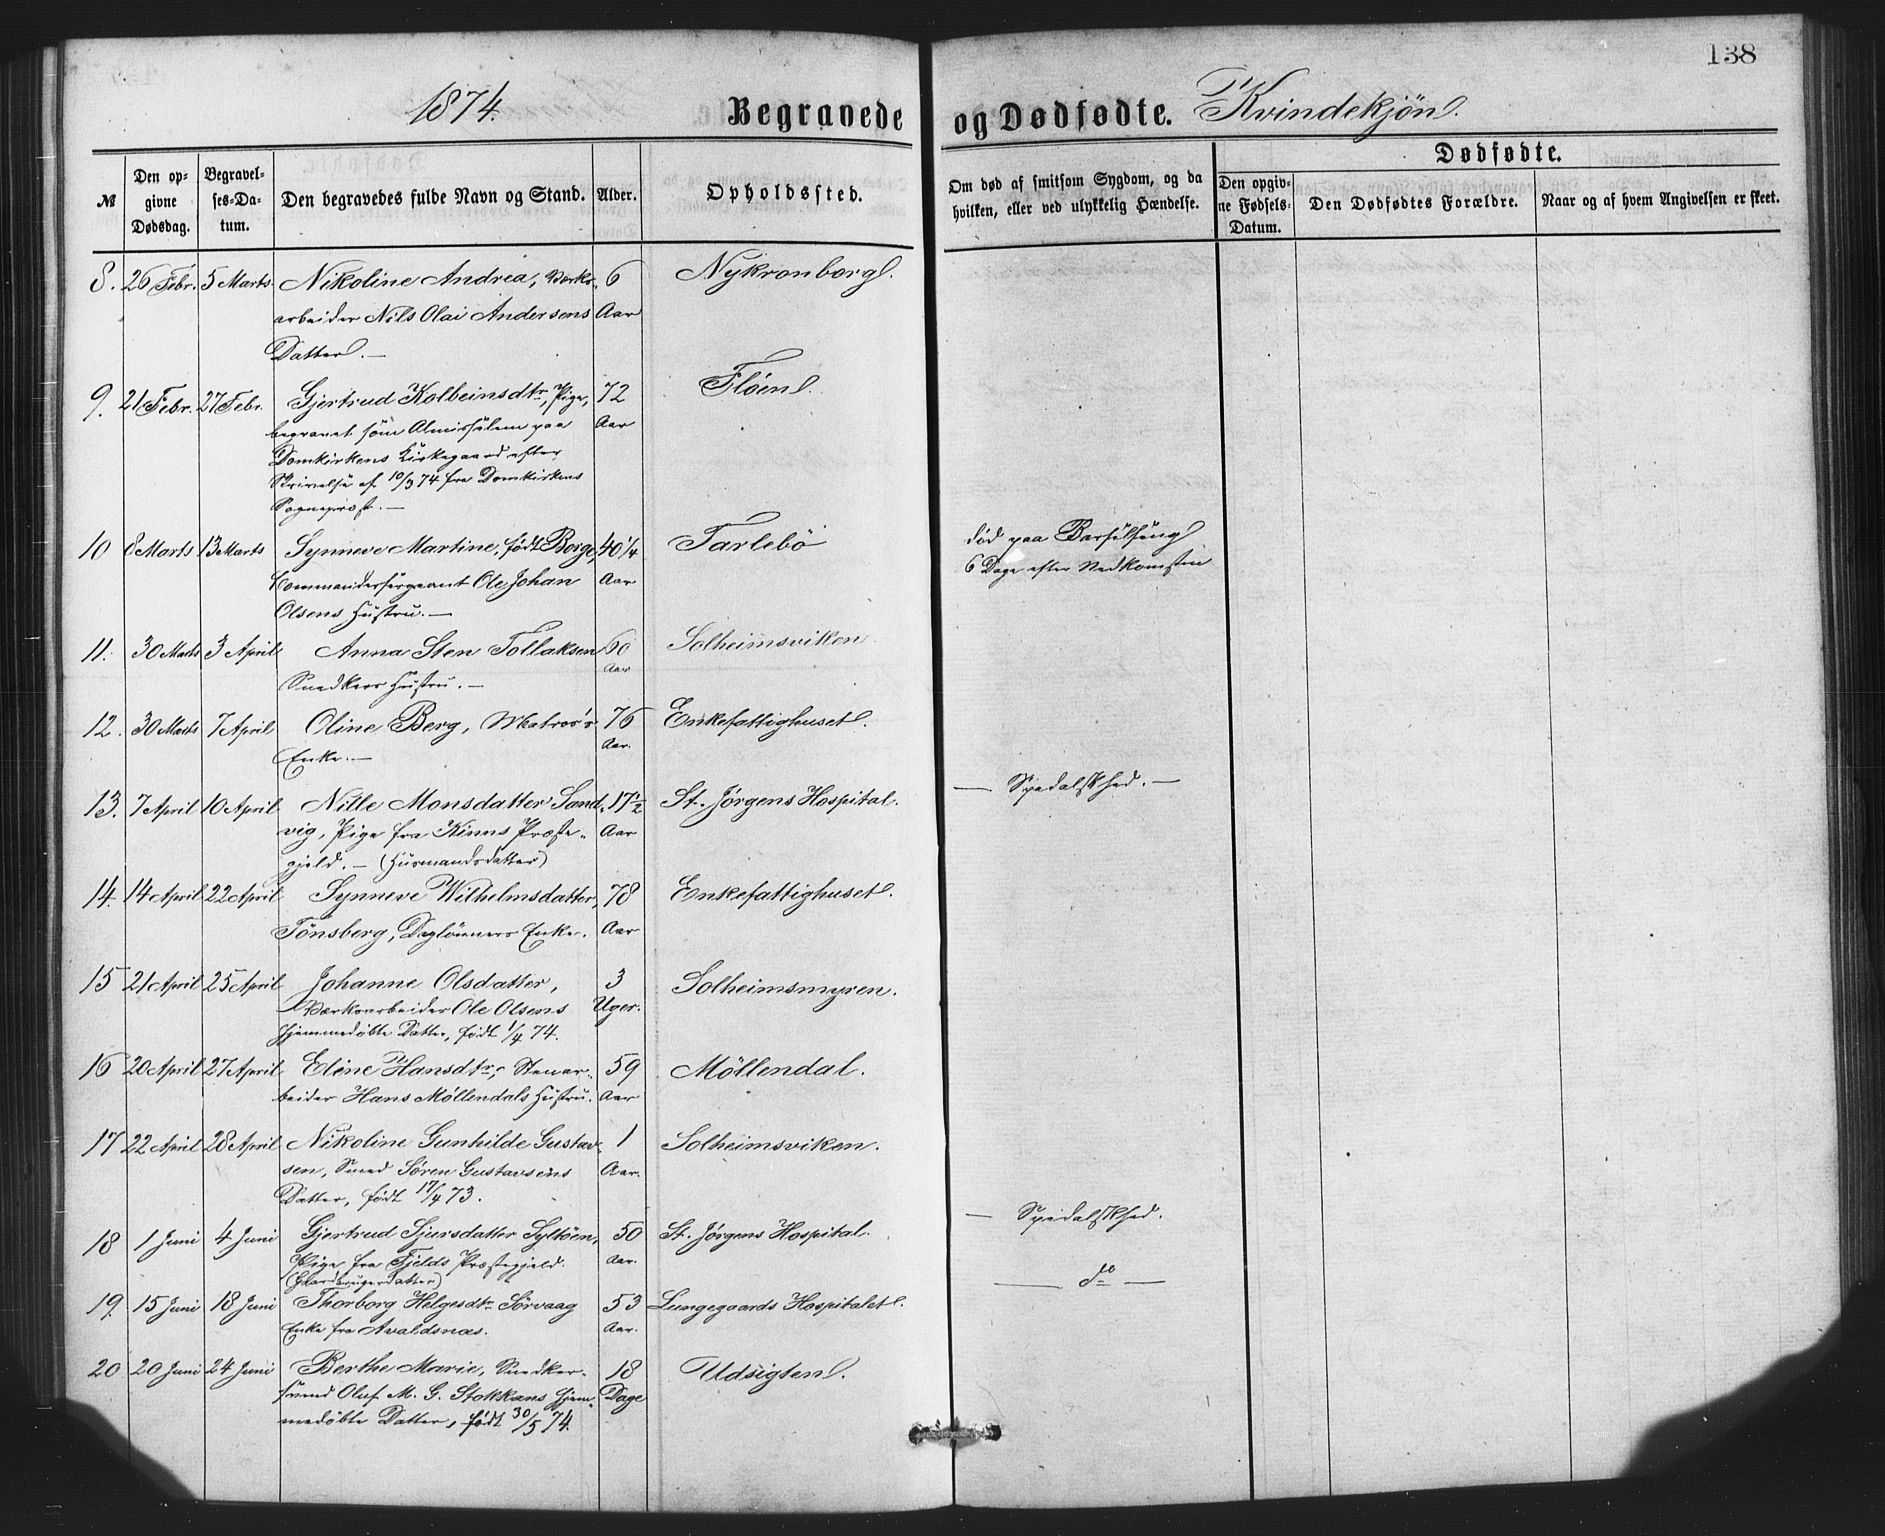 138
1874.
Begravede og Dødfødte. Kvindekjön.
№
Den opgivne Dødsdag.
Begravelses-Datum.
Den begravedes fulde Navn og Stand.
Alder.
Opholdssted.
Om død af smitsom Sygdom, og da hvilken, eller ved ulykkelig Hændelse.
Dødfødte.
Den opgivne Fødsels-Datum.
Den Dødfødtes Forældre.
Naar og af hvem Angivelsen er skeet.
8. 26 Febr. 5 Marts. Nikoline Andrea, Værks- 6 Nykronborg.
arbeider Nils Olai Andersens Aar
Datter. —
9. 21 Febr. 27 Febr. Gjertrud Kolbeinsdtr, Pige, 72 Fløen.
begravet som Almisselem paa Aar
Domkirkens Kirkegaard efter
Skrivelse af 10/3 74 fra Domkirkens
Sogneprest. —
10 8 Marts 13 Marts Synneve Martine, født Borge, 40 1/4 Tarlebö død paa Barselseng
Commandersergeant Ole Johan Aar 6 Dage efter Nedkomsten
Olsens Hustru. —
11. 30 Marts 3 April Anna Sten Tollaksen 60 Solheimsviken
Snedkers Hustru. — Aar
12. 30 Marts 7 April Oline Berg, Matros's 76 Enkefattighuset.
Enke. — Aar.
13. 7 April 10 April Nille Monsdatter Sand- 17 1/2 St. Jörgens Hospital. — Spedalskhed. —
vig, Pige fra Kinns Præste- Aar
gjeld. — (Husmandsdatter)
14. 14 April 22 April Synneve Wilhelmsdatter, 78 Enkefattighuset.
Tönsberg, Daglønners Enke. Aar
15 21 April 25 April Johanne Olsdatter, 3 Solheimsmyren.
Værksarbeider Ole Olsens Uger.
hjemmedøbte Datter, født 1/4 74.
16 20 April 27 April Eline Hansdtr, Stenar- 59 Möllendal.
beider Hans Möllendals Hustru. Aar
17 22 April 28 April Nikoline Gunhilde Gustav- 1 Solheimsviken.
sen, Smed Sören Gustavsens Aar.
Datter, født 17/4 73.
18 1 Juni 4 Juni Gjertrud Sjursdatter Syltöen, 50 St. Jörgens Hospital. — Spedalskhed.
Pige fra Fjelds Præstegjeld. Aar.
(Gaardbrugerdatter)
19. 15 Juni 18 Juni Thorborg Helgesdtr Sörvaag 53 Lungegaards Hospitalet. — do —
Enke fra Avaldsnæs. Aar.
20 20 Juni 24 Juni Berthe Marie, Snedker- 18 Udsigten.
svend Oluf M. G. Stokkans hjem- Dage
medøbte Datter, født 30/5 74.